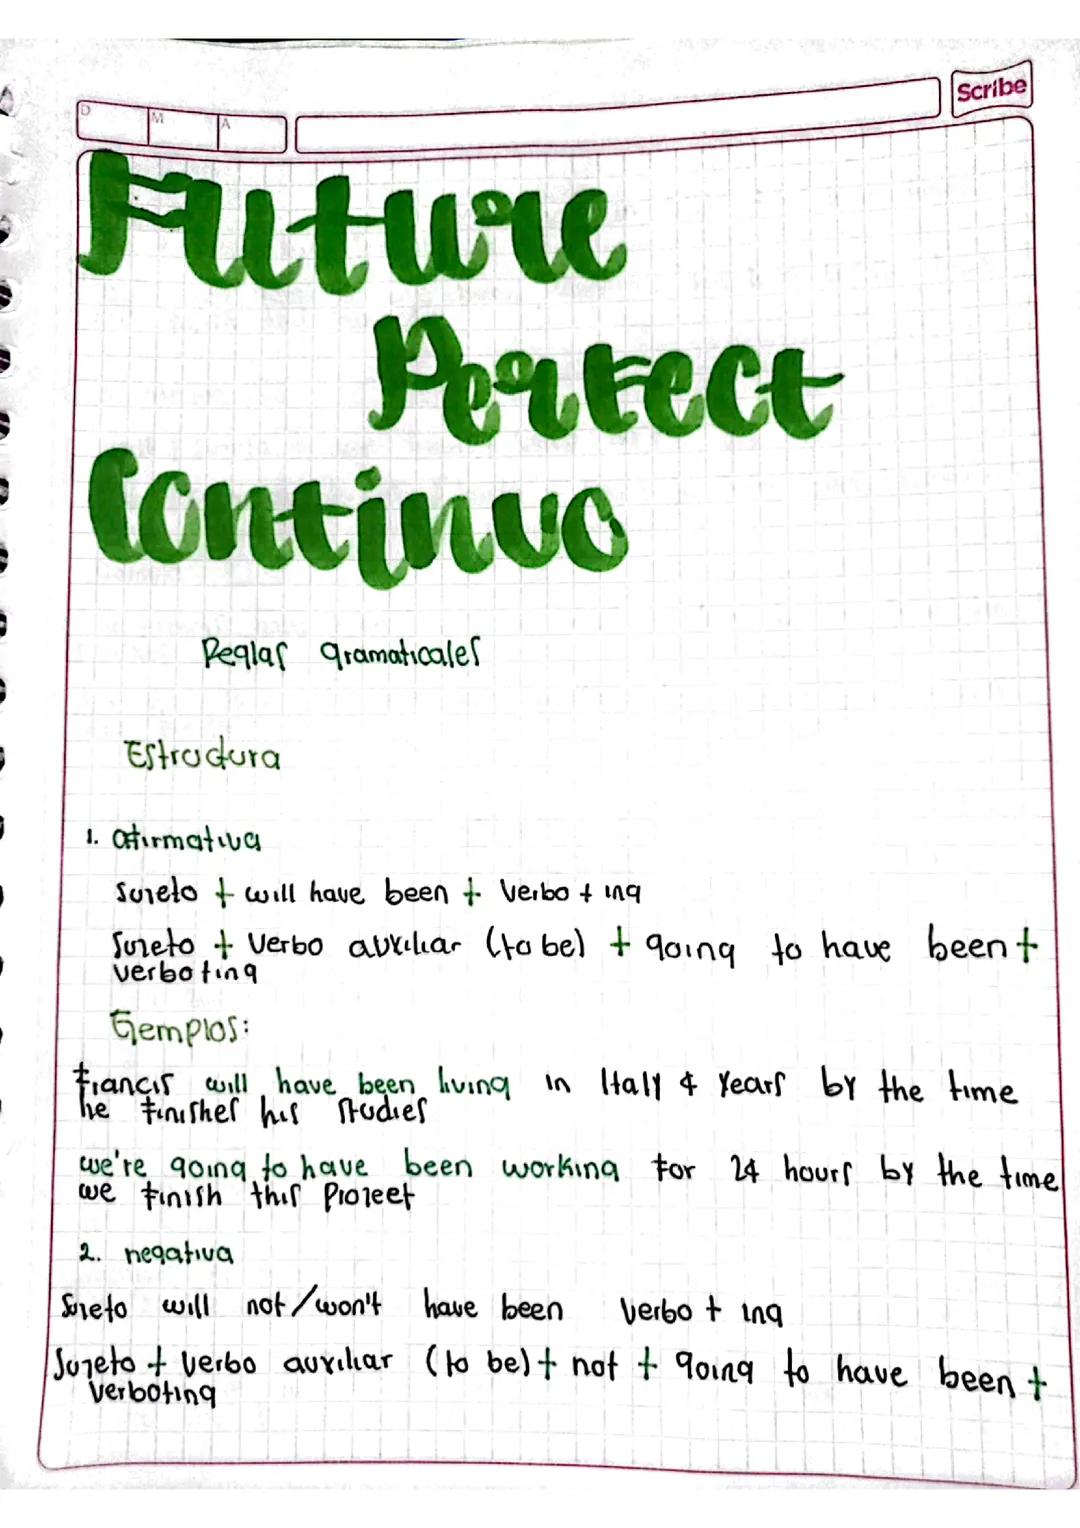 Scribe
D M A
Future
Perfect
Continuo
Reglas gramaticales
Estructura
1. afirmativa
Sujeto + will have been + Verbo + ing
Sujeto + Verbo auxiliar (to be) + going to have been +
verbo + ing
Ejemplos:
Francis will have been living in Italy 4 Years by the time
he finishes his studies
we're going to have been working for 24 hours by the time
we finish this Project
2. negativa
Sujeto will not/won't have been Verbo + ing
Sujeto + Verbo auxiliar (to be) + not + going to have been +
verbo+ing